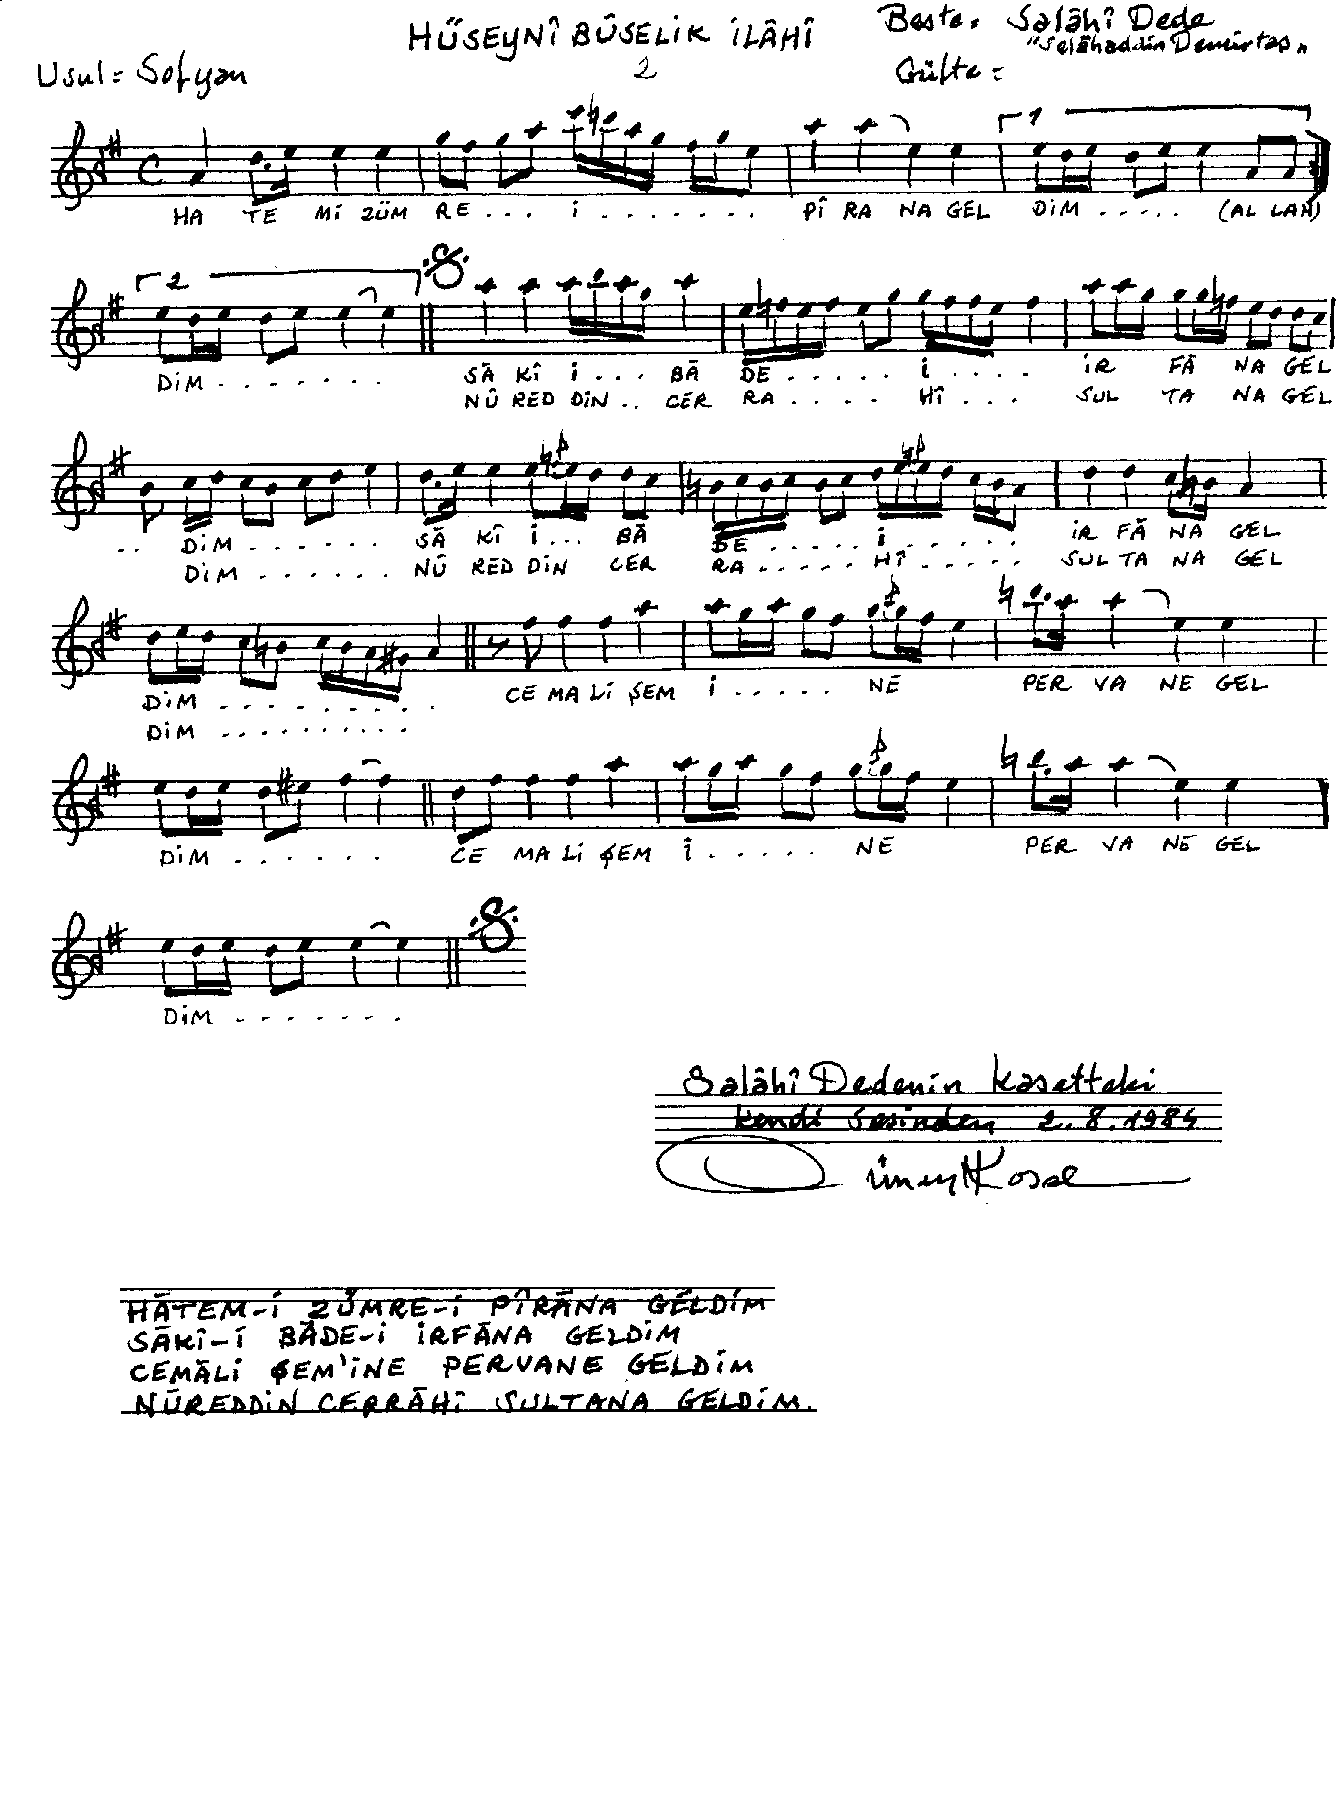 HÜSEYNÎ BÛSELİK İLÂHÎ
2
Beste = Salâhî Dede
"Selâhaddin Demirtaş"
Usul = Sofyan
Güfte =
1
HA TE Mİ ZÜM RE . . . İ . . . . . . . PÎ RA NA GEL DİM . . . . . (AL LAH)
2
DİM . . . . . . . SÂ KÎ İ . . . BÂ DE . . . . . İ . . . . İR FÂ NA GEL
NÛ RED DİN . . CER RA . . . . HÎ . . . SUL TA NA GEL
. . DİM . . . . . . SÂ KÎ İ . . . BÂ DE . . . . . İ . . . . . . İR FÂ NA GEL
DİM . . . . . . NÛ RED DİN CER RA . . . . . HÎ . . . . . SUL TA NA GEL
DİM . . . . . . . . . . CE MA Lİ ŞEM İ . . . . . NE PER VA NE GEL
DİM . . . . . . . . . .
DİM . . . . . . CE MA Lİ ŞEM Î . . . . . NE PER VA NE GEL
DİM . . . . . . .
Salâhî Dedenin Kasetteki
kendi sesinden 2.8.1984
HÂTEM-İ ZÜMRE-İ PÎRÂNA GELDİM
SÂKÎ-İ BÂDE-İ İRFÂNA GELDİM
CEMÂLİ ŞEM'İNE PERVANE GELDİM
NÛREDDİN CERRÂHÎ SULTANA GELDİM.